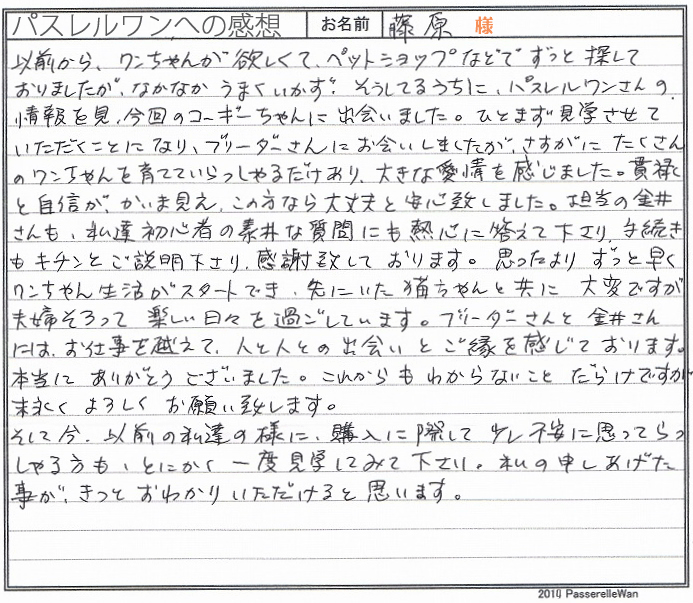 パスレルワンへの感想 お名前 藤原 様
以前から、ワンちゃんが欲しくて、ペットショップなどで ずっと探して
おりましたが、なかなか うまくいかず、そうしてるうちに、パスレルワンさんの
情報を見、今回のコーギーちゃんに出会いました。ひとまず見学させて
いただくことになり、ブリーダーさんにお会いしましたが、さすがに たくさん
のワンちゃんを育てていらっしゃるだけあり、大きな愛情を感じました。貫禄
と自信が、かいま見え、この方なら大丈夫と安心致しました。担当の金井
さんも、私達初心者の素朴な質問にも熱心に答えて下さり、手続き
もキチンとご説明下さり、感謝致しております。思ったより ずっと早く
ワンちゃん生活がスタートでき、先にいた猫ちゃんと共に 大変ですが
夫婦そろって 楽しい日々を過ごしています。ブリーダーさんと金井さん
には、お仕事を越えて、人と人との出会いとご縁を感じております。
本当に ありがとうございました。これからもわからないことだらけですが
末永く よろしくお願い致します。
そして今、以前の私達の様に、購入に際して少し不安に思ってらっ
しゃる方も、とにかく一度見学してみて下さい。私の申しあげた
事が、きっと おわかりいただけると思います。
2010 PasserelleWan